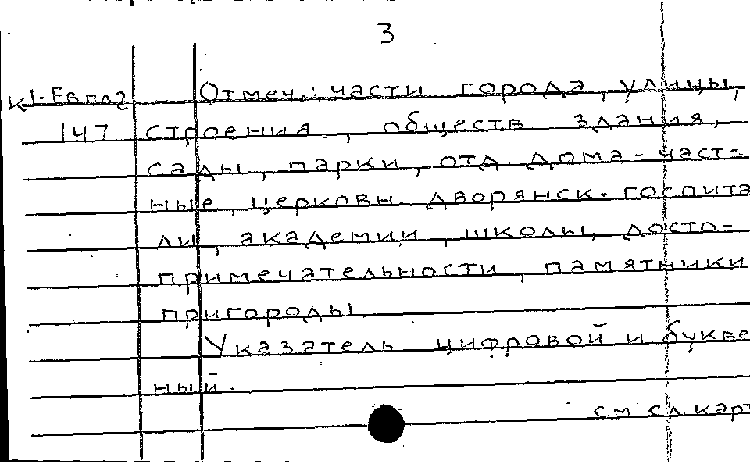 3
К1-Евг
Отмеч.: части города, улицы,
147 строения, обществ здания,
сады, парки, отд дома-част-
ные, церковь дворянск. госпита
ли, академии, школы, досто-
примечательности, памятники
пригороды.
Указатель цифровой и букве
ный.
см сл карт